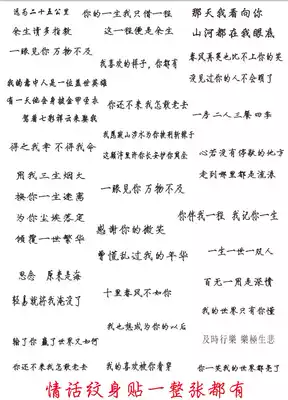 遇与二十五公里
余生请多指教
一眼见你 万物不及
我的意中人是一位盖世英雄
有一天他会身披金甲圣衣
驾着七彩祥云来娶我
得之我幸 不得我命
用我三生烟火
换你一生迷离
为你尘埃落定
倾覆一世繁华
思念 原来是海
轻易就将我淹没了
输了你 赢了世界又如何
你还未老我怎敢老去
你的一生我只借一程
这一程便是余生
我喜欢的样子，你都有
你还未老我怎敢老去
我愿跋山涉水为你披荆斩棘
这颠浮里许你长安护你周全
一眼见你 万物不及
感谢你的微笑
曾慌乱过我的年华
十里春风不如你
我也想成为你的以后
我的喜欢被你看穿
那天我看向你
山河都在我眼底
春风再美也比不上你的笑
没见过你的人不会明了
一房二人三餐四季
心若没有停歇的地方
走到哪里都是流浪
你伴我一程 我记你一生
一生一世一双人
百无一用是深情
我的世界只有你懂
及時行樂 樂極生悲
你一笑我的世界都是了
情话纹身贴一整张都有